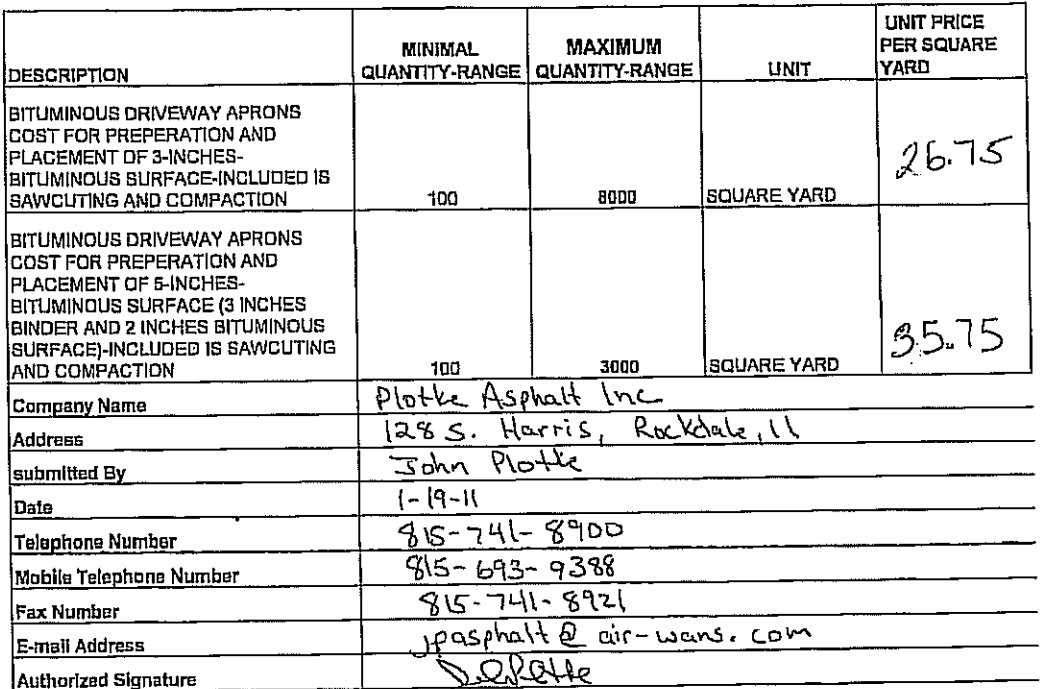 UNIT PRICE
PER SQUARE
YARD
MINIMAL
QUANTITY-RANGE
MAXIMUM
QUANTITY-RANGE
UNIT
DESCRIPTION
BITUMINOUS DRIVEWAY APRONS
COST FOR PREPERATION AND
PLACEMENT OF 3-INCHES-
BITUMINOUS SURFACE-INCLUDED IS
SAWCUTING AND COMPACTION
100
8000
SQUARE YARD
26.75
BITUMINOUS DRIVEWAY APRONS
COST FOR PREPERATION AND
PLACEMENT OF 5-INCHES-
BITUMINOUS SURFACE (3 INCHES
BINDER AND 2 INCHES BITUMINOUS
SURFACE)-INCLUDED IS SAWCUTING
AND COMPACTION
100
3000
SQUARE YARD
35.75
Company Name Plotke Asphalt Inc
Address 128 S. Harris, Rockdale, Il
submitted By John Plotke
Date 1-19-11
Telephone Number 815-741-8900
Mobile Telephone Number 815-693-9388
Fax Number 815-741-8921
E-mail Address jpasphalt@air-wans.com
Authorized Signature